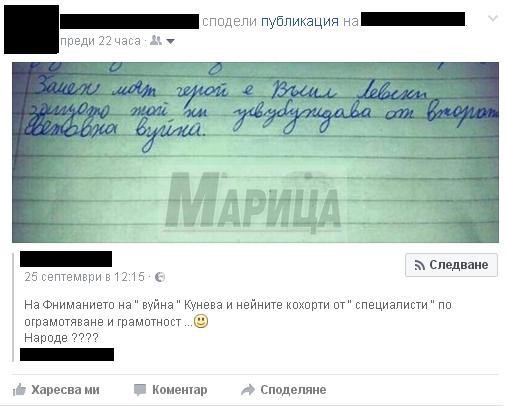 сподели публикация на
преди 22 часа
Замен моят герой е Въсил Левски
защуото той ни усвубуждава от втората
световна вуйна.
МАРИЦА
25 септември в 12:15
Следване
На Фниманието на " вуйна " Кунева и нейните кохорти от " специалисти " по
ограмотяване и грамотност ...
Народе ????
Харесва ми Коментар Споделяне